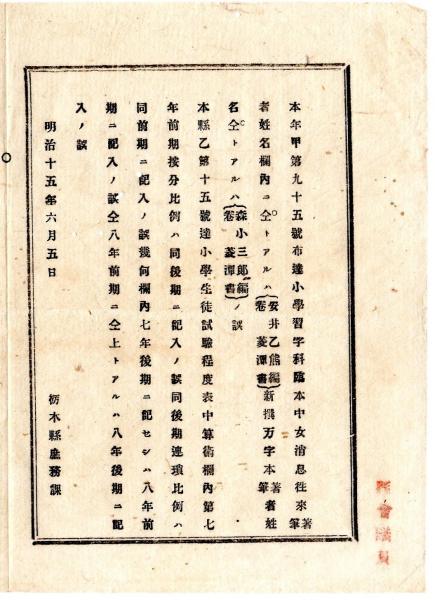 本年甲第九十五號布達小學習字科臨本中女消息往來著筆
者姓名欄內ニ仝トアルハ安井乙熊編卷菱潭書新撰万字本著筆者姓
名仝トアルハ森小三郎編卷菱潭書ノ誤
本縣乙第十五號達小學生徒試驗程度表中算術欄內第七
年前期按分比例ハ同後期ニ記入ノ誤同後期連瑣比例ハ
同前期ニ記入ノ誤幾何欄內七年後期ニ記セシハ八年前
期ニ記入ノ誤仝八年前期ニ仝上トアルハ八年後期ニ記
入ノ誤
明治十五年六月五日
栃木縣庶務課
會議員